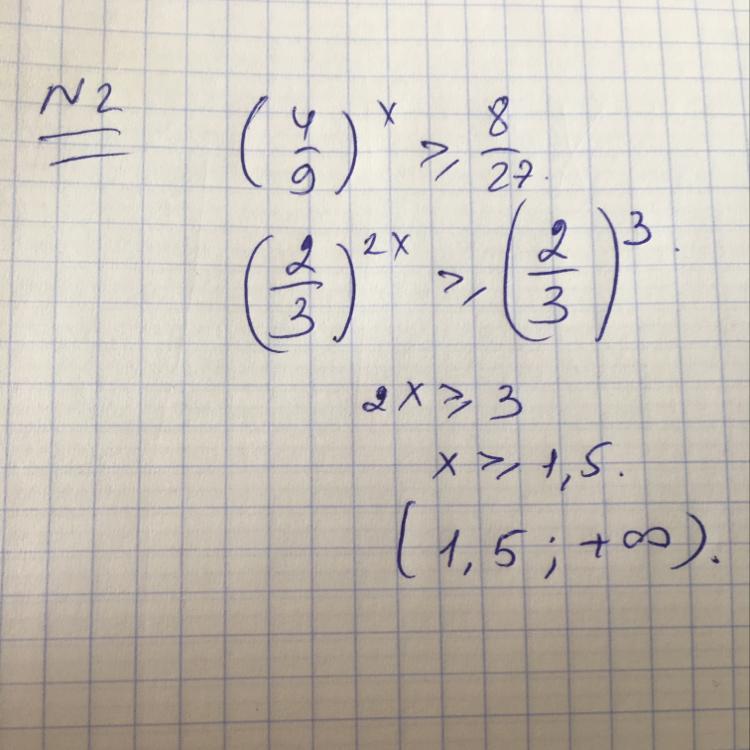 N2
(4/9)^x ⩾ 8/27.
(2/3)^2x ⩾ (2/3)^3.
2x ⩾ 3
x ⩾ 1,5.
(1,5; +∞).